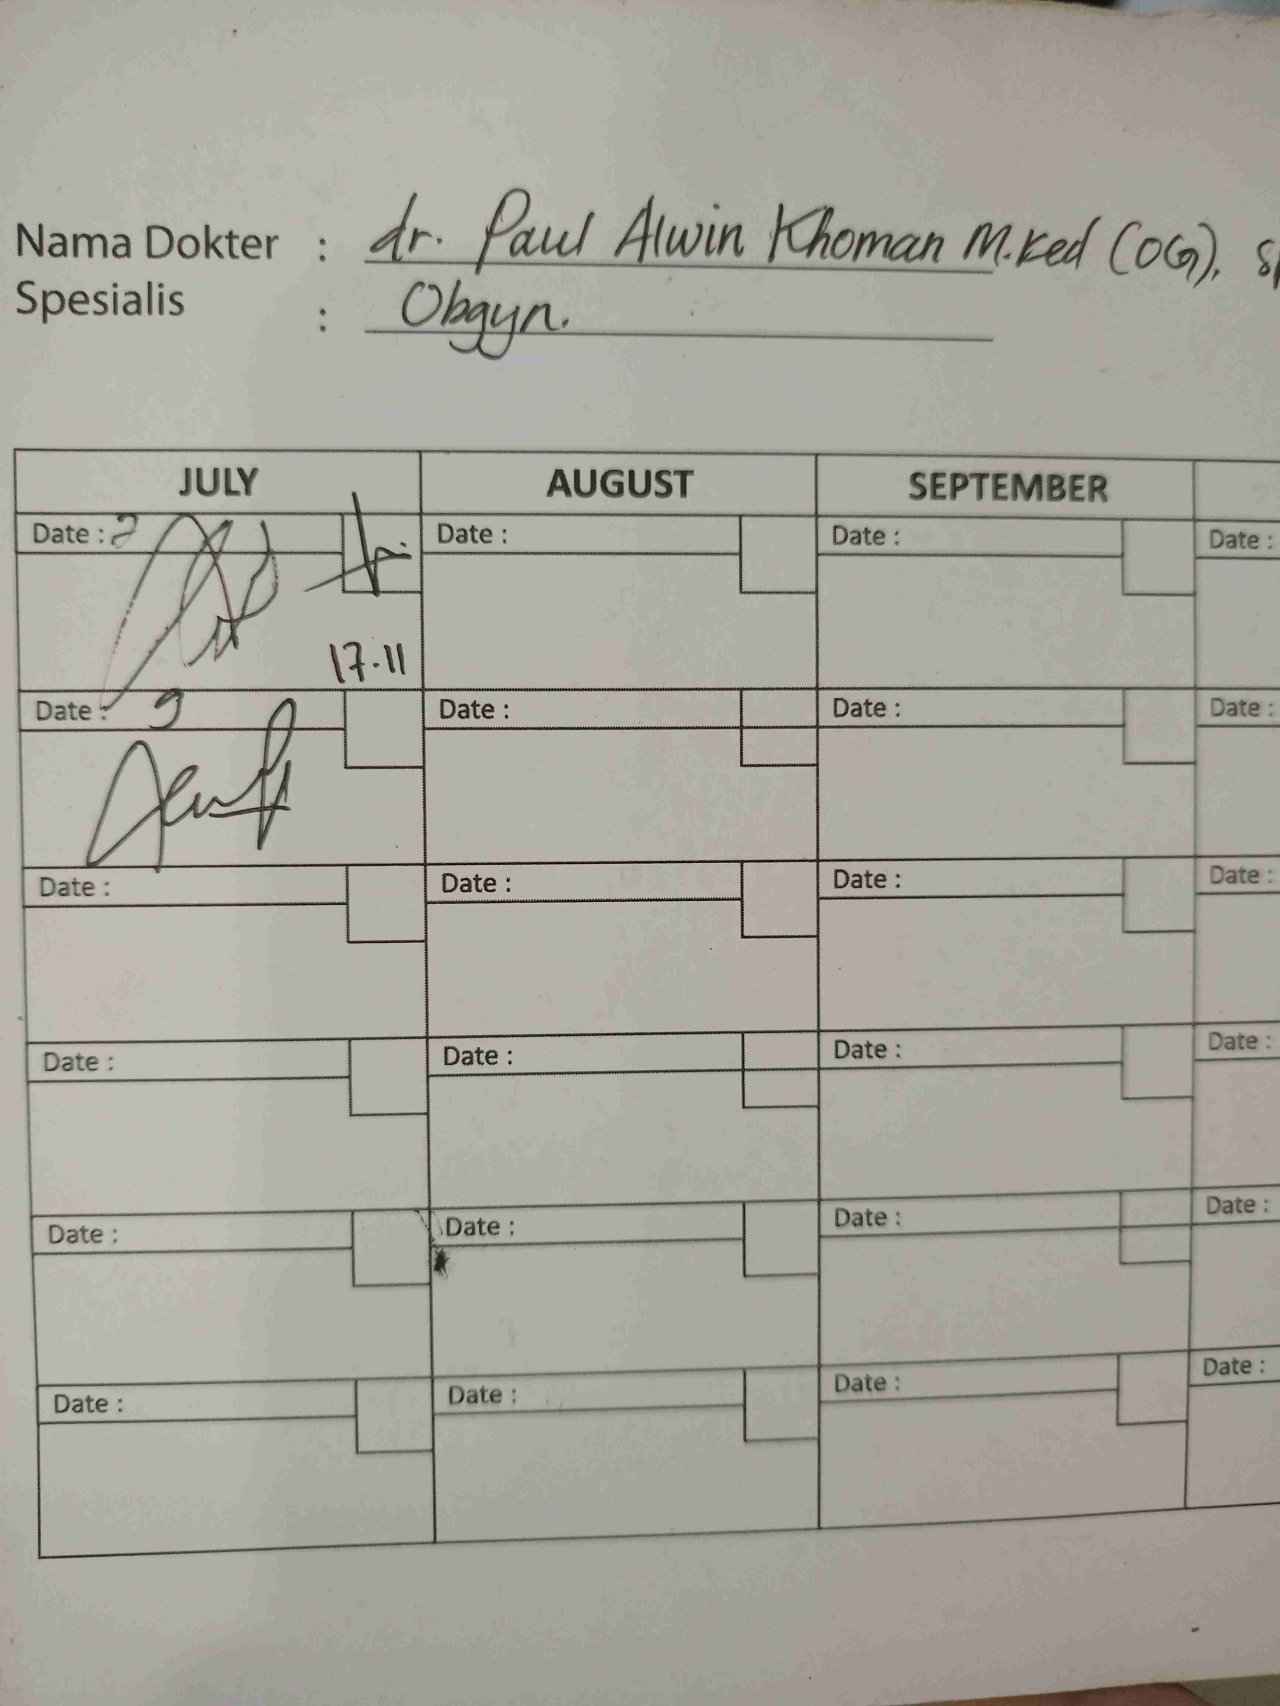 Nama Dokter : dr. Paul Alwin Khoman M.Ked (OG),
Spesialis : Obgyn.
JULY AUGUST SEPTEMBER
Date : 2 Date : Date : Date :
17.11
Date : 9 Date : Date : Date :
Date : Date : Date : Date :
Date : Date : Date : Date :
Date : Date : Date : Date :
Date : Date : Date : Date :